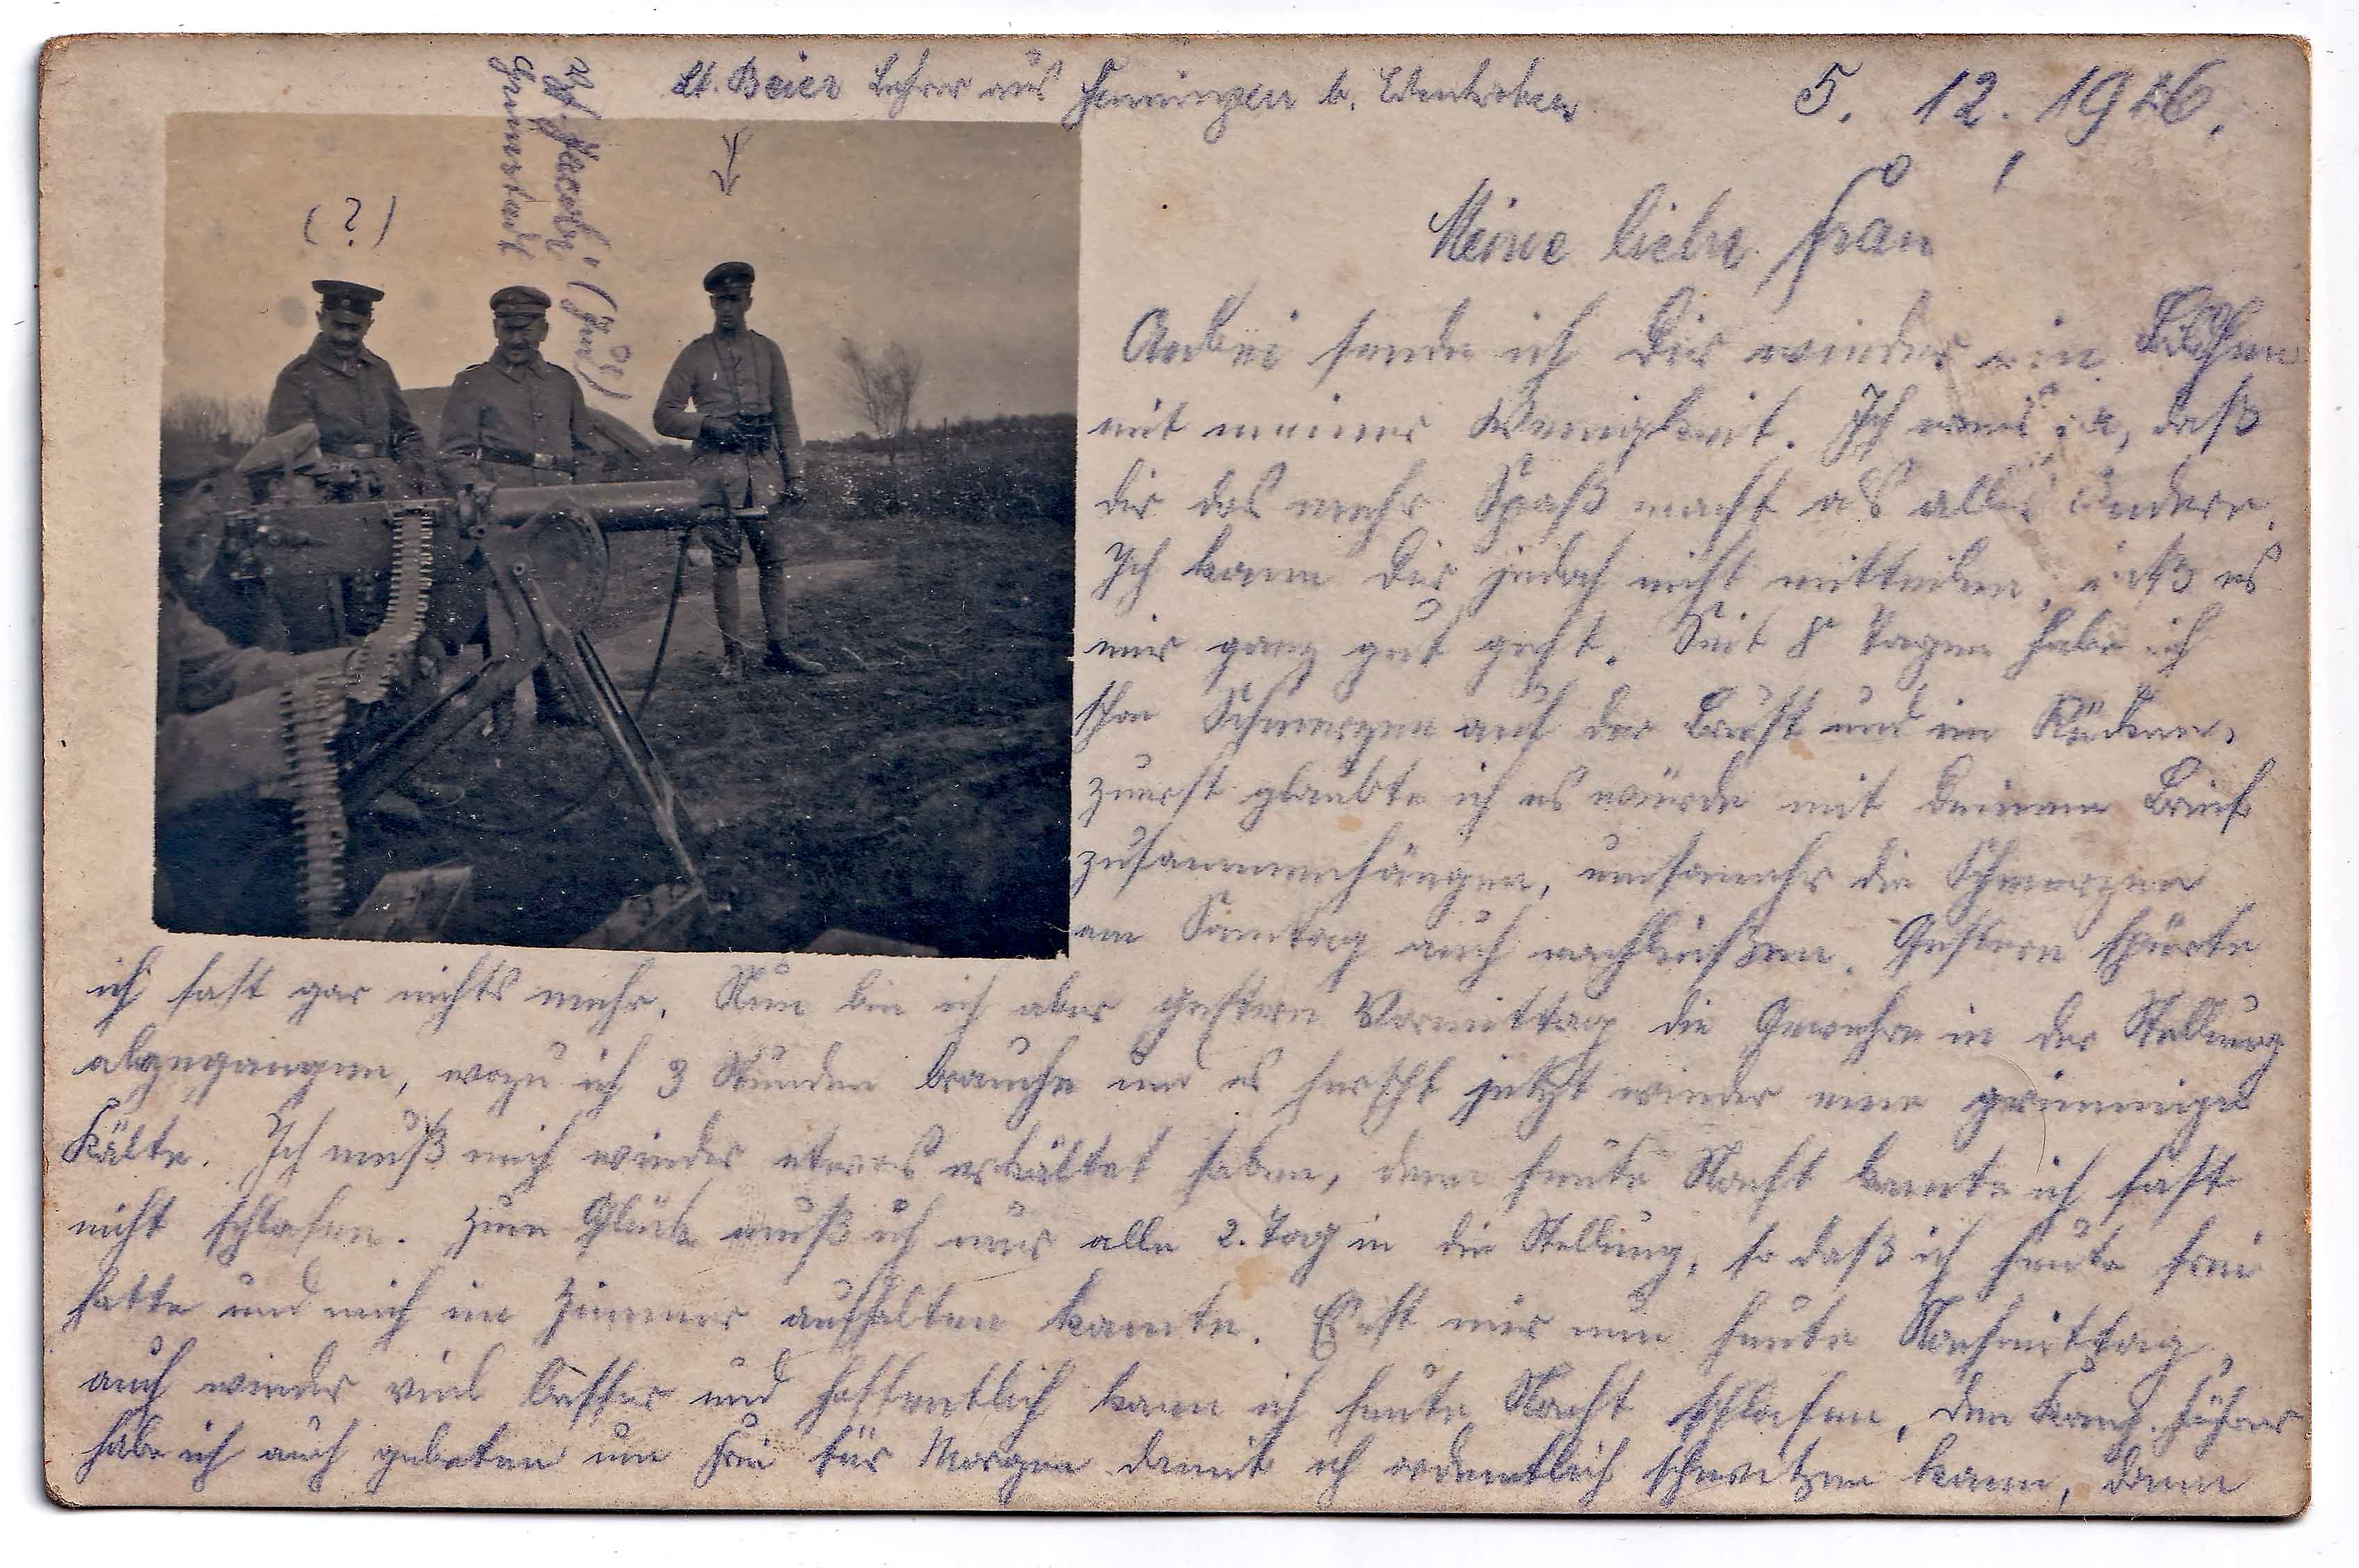 Lt. Beier Lehrer aus b.
5. 12. 1916.
Jacobi (Jude)
Grünstadt
(?)
Meine liebe Frau!
Anbei sende ich Dir wieder ein Bildchen
mit meiner Wenigkeit. Ich weis ja, daß
dir das mehr Spaß macht als alles Andere.
Ich kann Dir jedoch nicht mitteilen, daß es
mir ganz gut geht. Seit 8 Tagen habe ich
schon Schmerzen auf der Brust und im Rücken,
zuerst glaubte ich es würde mit Deinem Brief
zusammenhängen, umsomehr die Schmerzen
am Samtag auch nachließen. Gestern spürte
ich fast gar nichts mehr. Nun bin ich aber gestern Vormittag die Gewehre in der Stellung
abgegangen, wozu ich 3 Stunden brauche und es herscht jetzt wieder eine grimmige
Kälte. Ich muß mich wieder etwas erkältet haben, denn heute Nacht konnte ich fast
nicht schlafen. Zum Glück muß ich nur alle 2. Tag in die Stellung, so daß ich heute frei
hatte und mich im Zimmer aufhalten konnte. Es ist mir nun heute Nachmittag,
auch wieder viel besser und hoffentlich kann ich heute Nacht schlafen, den Komp. Führer
habe ich auch gebeten um frei für Morgen damit ich ordentlich schwitzen kann, denn